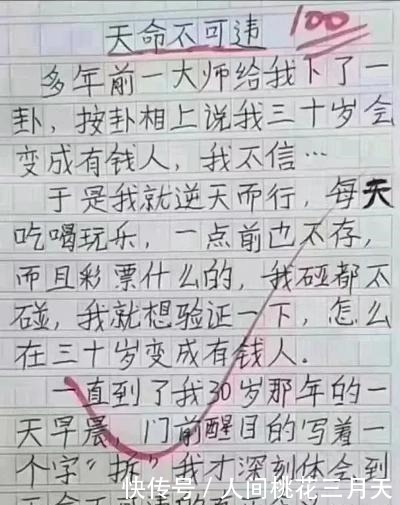 天命不可违
100
多年前一大师给我下了一
卦，按卦相上说我三十岁会
变成有钱人，我不信…
于是我就逆天而行，每天
吃喝玩乐，一点前也不存，
而且彩票什么的，我碰都不
碰，我就想验证一下，怎么
在三十岁变成有钱人.
一直到了我30岁那年的一
天早晨，门前醒目的写着一
个字“拆”我才深刻体会到
快传号 / 人间桃花三月天